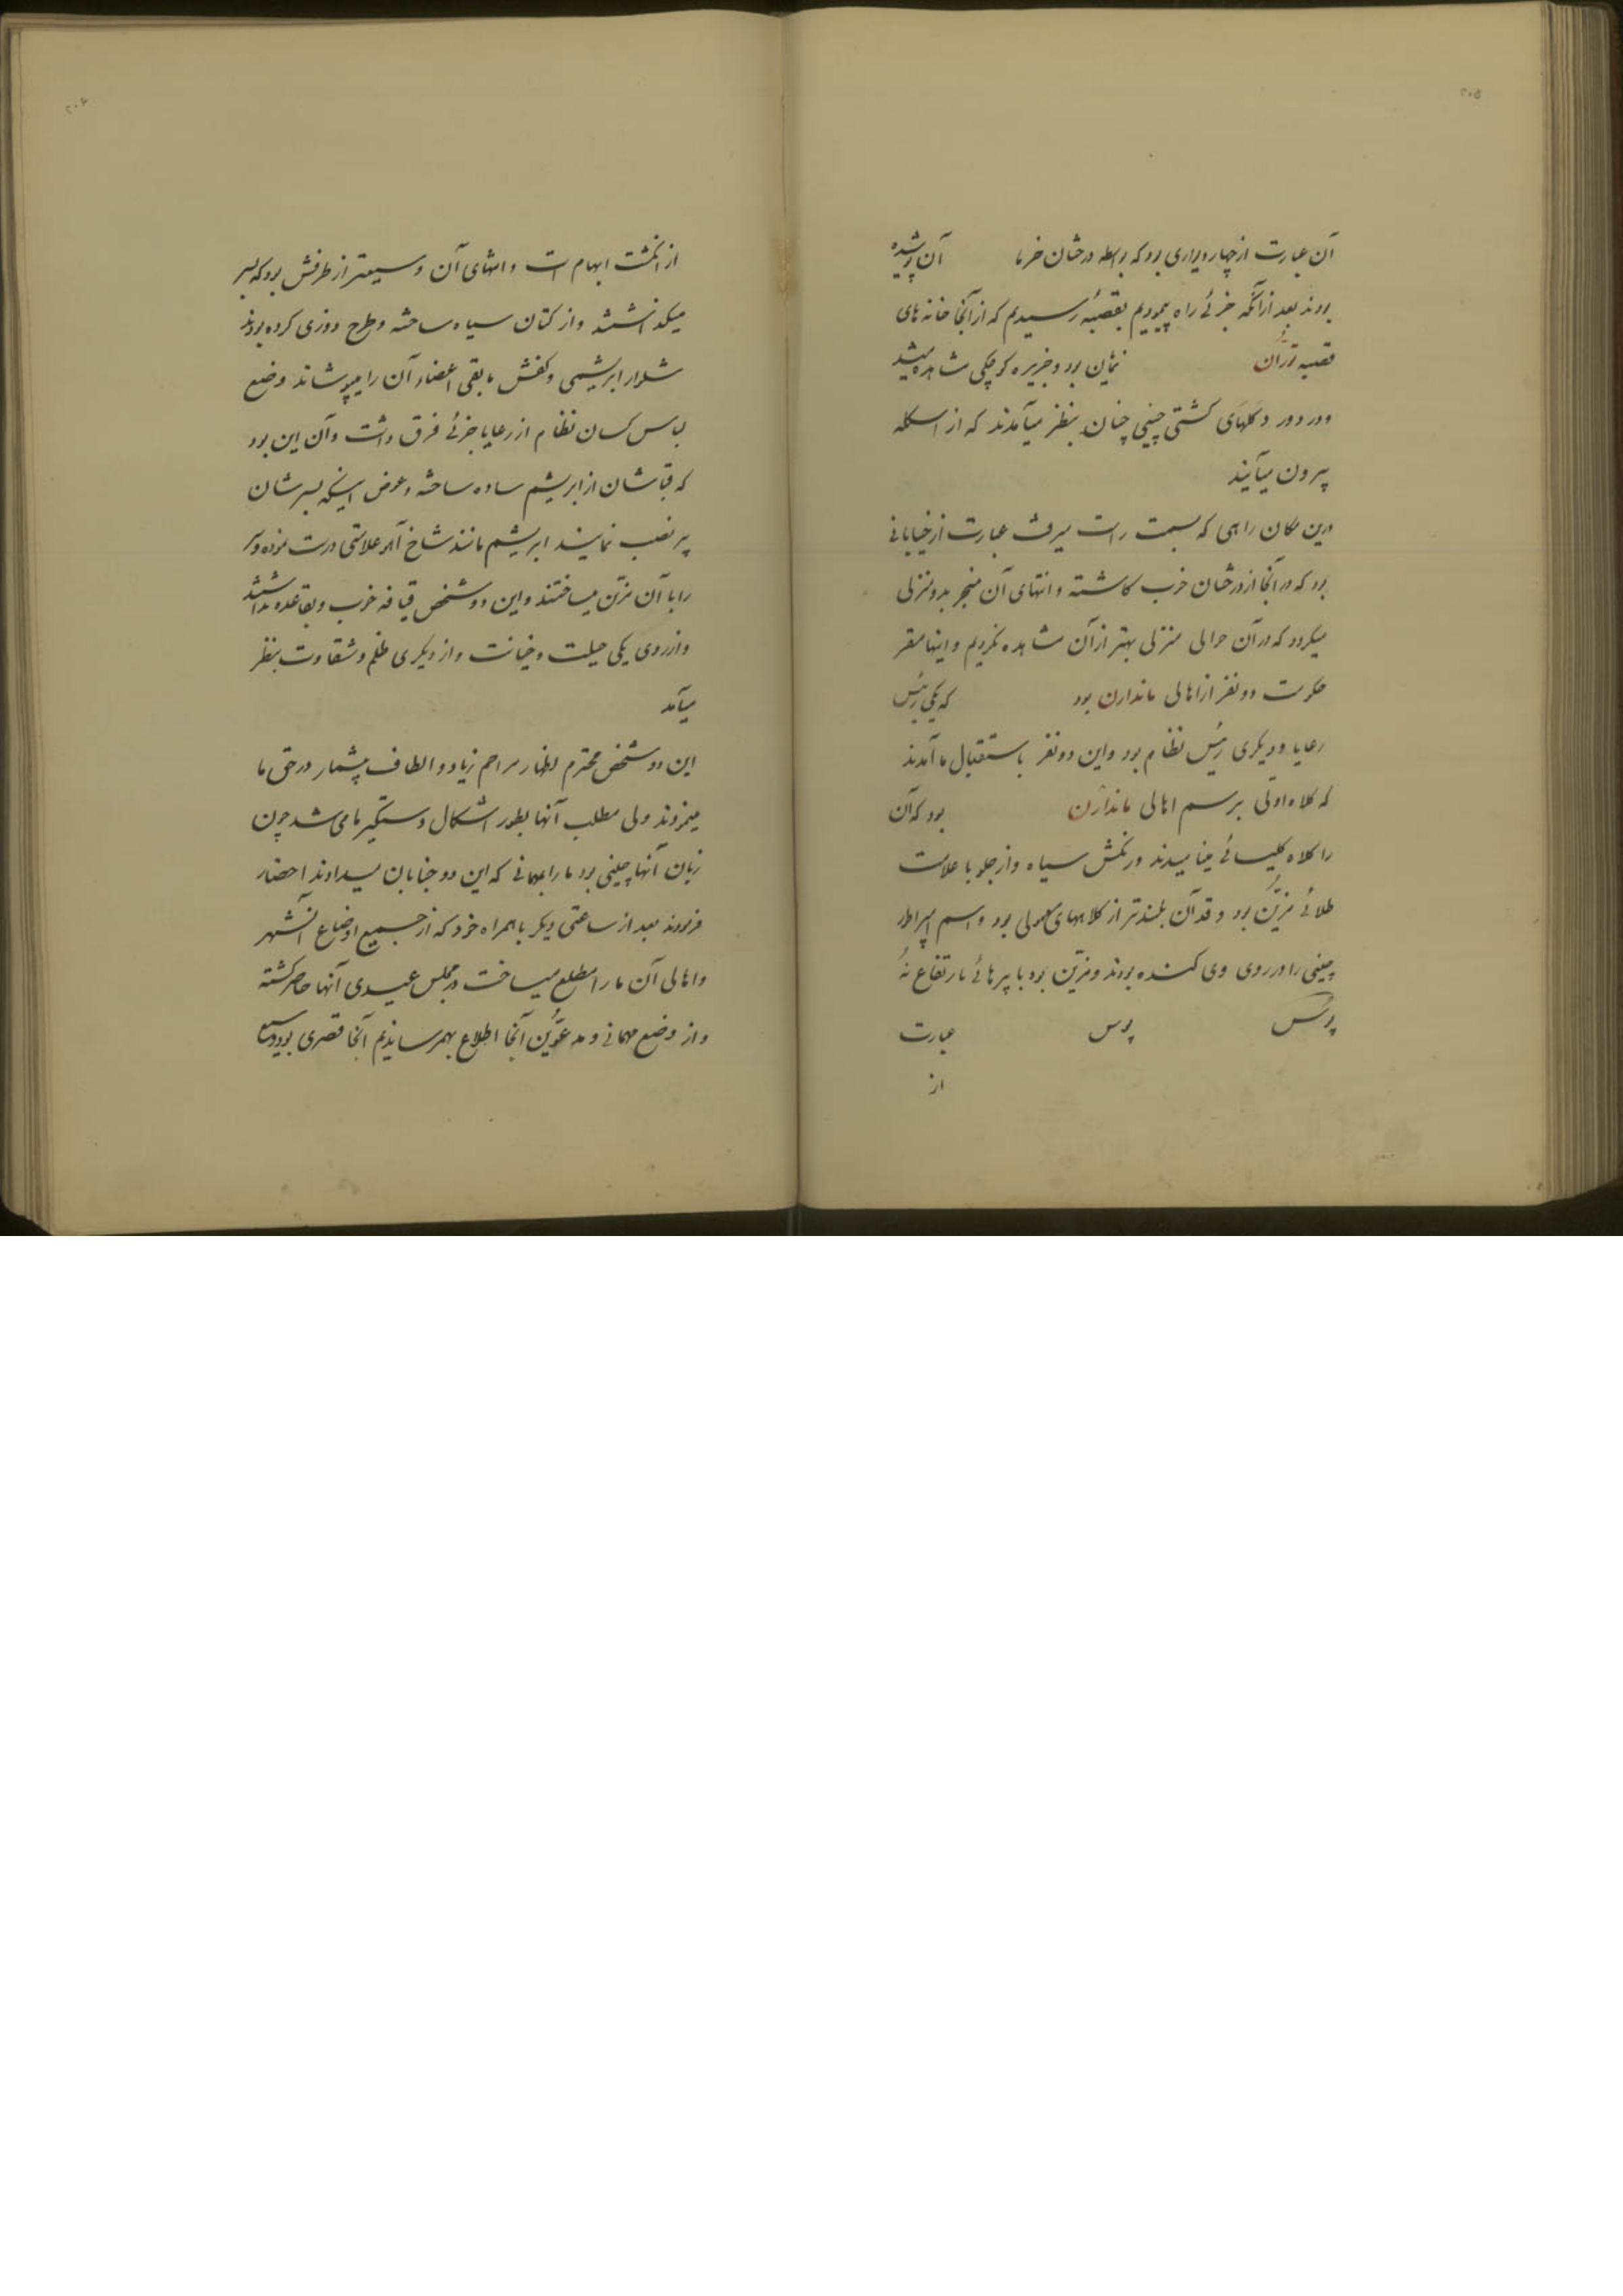 ۲۰۵
آن عبارت از چهار دیواری بود که بواسطه درختان خرما آن پوشیده
بودند بعد از آنکه جزئی راه پیمودیم بقصبهٔ رسیدیم که از آنجا خانه های
قصبه توران نمایان بود و جزیره کوچکی مشاهده میشد
و در دور دکلهای کشتی چینی چنان بنظر میآمدند که از اسکله
بیرون میآیند
درین مکان راهی که بسمت راست میرفت عبارت از خیابانی
بود که در آنجا از درختان خوب کاشته و انتهای آن منجر بدو منزلی
میگردد که در آن حوالی منزلی بهتر از آن مشاهده نکردیم و اینها مقر
حکومت دو نفر از اهالی ماندارن بود که یکی رئیس
رعایا و دیگری رئیس نظام بود و این دو نفر باستقبال ما آمدند
که کلاه اولی برسم اهالی ماندارن بود که آن
را کلاه کلیسائی مینامیدند و رنگش سیاه و از جلو با علامت
طلائی مزیّن بود و قد آن بلندتر از کلاههای معمولی بود و اسم امپراطور
چینی را در روی وی کنده بودند و مزیّن بود با پرهائی بارتفاع نُه
پوس پوس عبارت
از
۲۰۶
از انگشت ابهام است و انتهای آن وسیعتر از طرفش بود که بسر
میگذاشتند و از کتان سیاه ساخته و طرح دوزی کرده بودند
شلوار ابریشمی و کفش مابقی اعضاء آن را میپوشاند وضع
لباس کسان نظام از رعایا جزئی فرق داشت و آن این بود
که قباشان از ابریشم ساده ساخته و عوض اینکه بسرشان
پر نصب نمایند ابریشم مانند شاخ آهو علامتی درست نموده و سر
را با آن مزیّن میساختند و این دو شخص قیافه خوب و بقاعده نداشتند
و از روی یکی حیلت و خیانت و از دیگری ظلم و شقاوت بنظر
میآمد
این دو شخص محترم اظهار مراحم زیاد و الطاف بیشمار در حق ما
مینمودند ولی مطلب آنها بطور اشکال دستگیر ما می شد چون
زبان آنها چینی بود ما را بمهمانی که این دو جنابان میدادند احضار
فرمودند بعد از ساعتی دیگر با همراه خود که از جمیع اوضاع آنشهر
و اهالی آن ما را مطلع میساخت در مجلس عیدی آنها حاضر گشته
و از وضع مهمانی و مدعوّین آنجا اطلاع بهمرساندیم آنجا قصری بود وسیع